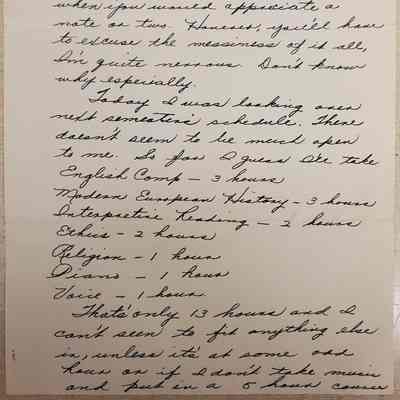 when you would appreciate a
note or two. However, you'll have
to excuse the messiness of it all,
I'm quite nervous. Don't know
why especially.
Today I was looking over
next semester's schedule. There
doesn't seem to be much open
to me. So far I guess I'll take
English Comp – 3 hours
Modern European History – 3 hours
Interpretive Reading – 2 hours
Ethics – 2 hours
Religion – 1 hour
Piano – 1 hour
Voice – 1 hour
That's only 13 hours and I
can't seem to fit anything else
in, unless it's at some odd
hour or if I don't take music
and put in a 5 hour course